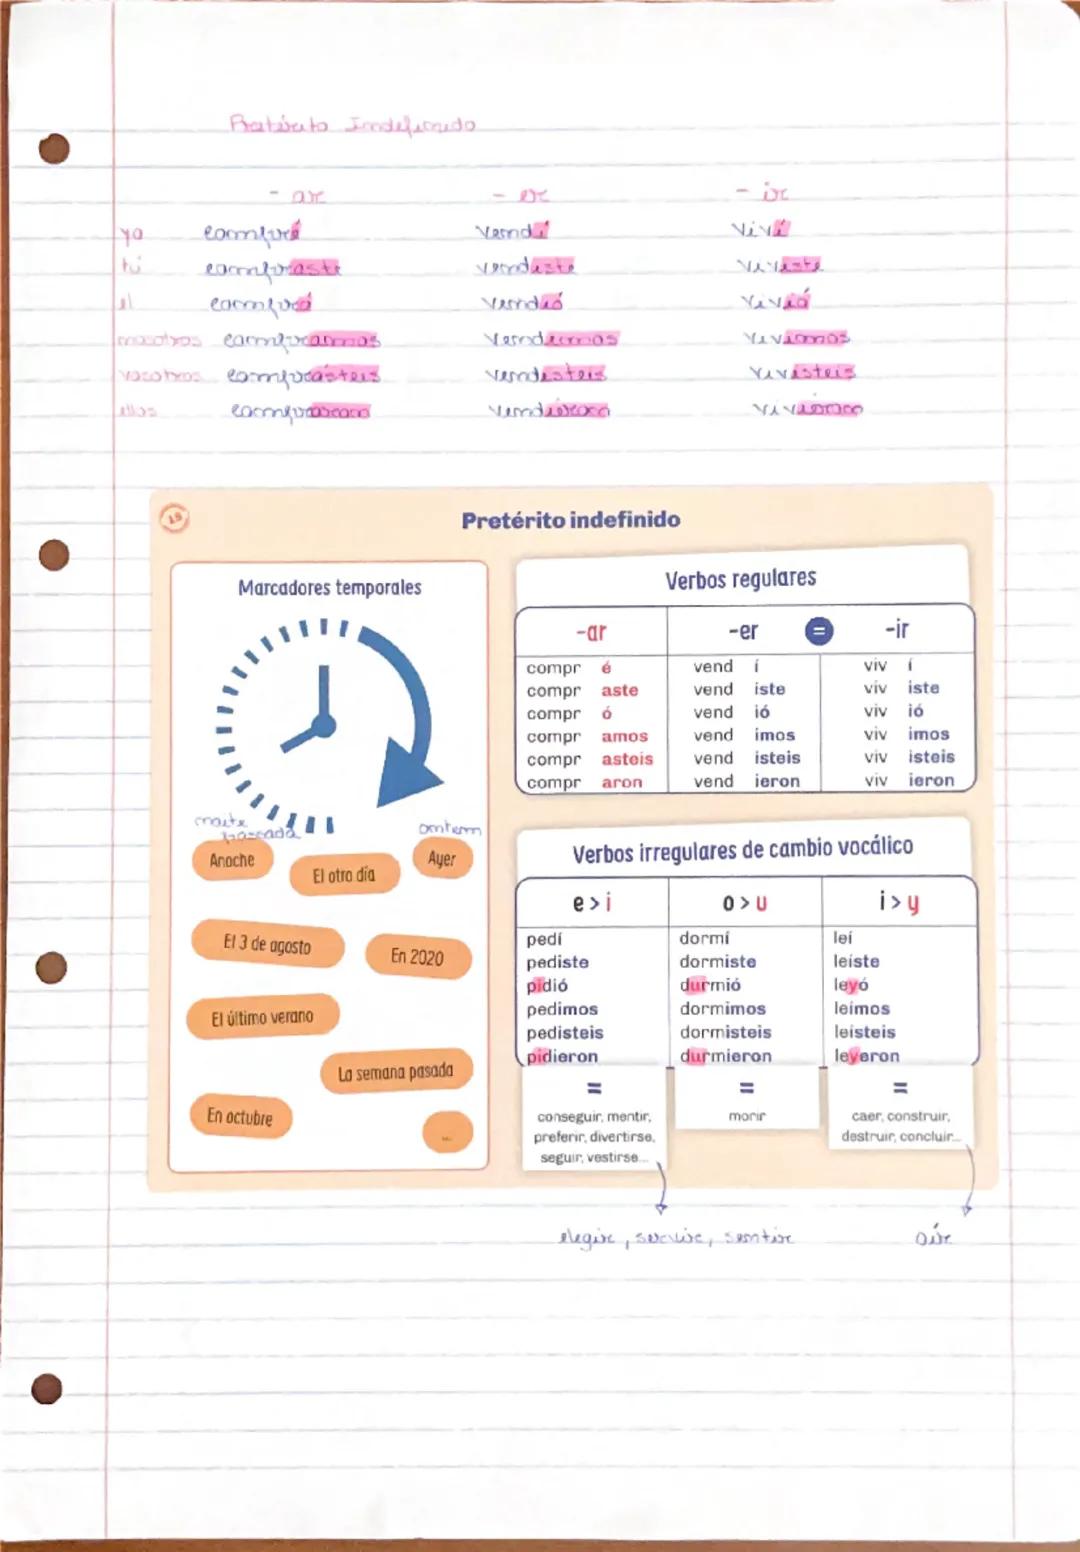 Pretérito Indefinido
- ar - er - ir
yo compré vendí viví
tú compraste vendiste viviste
él compró vendió vivió
nosotros compramos vendimos vivimos
vosotros comprasteis vendisteis vivisteis
ellos compraron vendieron vivieron
19
Pretérito indefinido
Marcadores temporales
noite passada
ontem
Anoche
El otro día
Ayer
El 3 de agosto
En 2020
El último verano
La semana pasada
En octubre
...
Verbos regulares
-ar -er = -ir
compr é vend í viv í
compr aste vend iste viv iste
compr ó vend ió viv ió
compr amos vend imos viv imos
compr asteis vend isteis viv isteis
compr aron vend ieron viv ieron
Verbos irregulares de cambio vocálico
e > i o > u i > y
pedí dormí leí
pediste dormiste leíste
pidió durmió leyó
pedimos dormimos leímos
pedisteis dormisteis leísteis
pidieron durmieron leyeron
= = =
conseguir, mentir,
preferir, divertirse,
seguir, vestirse...
morir
caer, construir,
destruir, concluir...
elegir, servir, sentir
oír